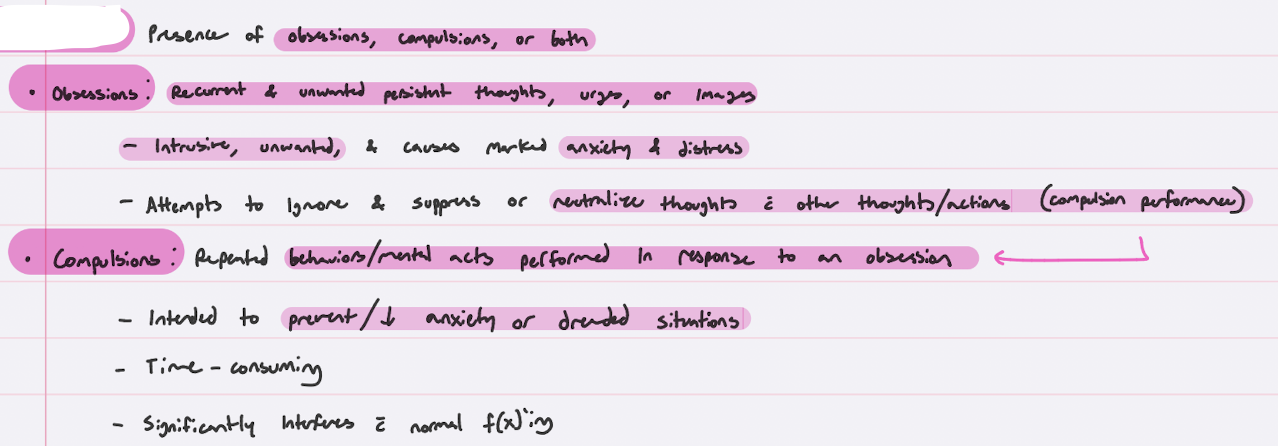 Presence of obsessions, compulsions, or both
• Obsessions: Recurrent & unwanted persistent thoughts, urges, or images
- Intrusive, unwanted, & causes marked anxiety & distress
- Attempts to ignore & suppress or neutralize thoughts c̄ other thoughts/actions (compulsion performance)
• Compulsions: Repeated behaviors/mental acts performed in response to an obsession
- Intended to prevent/↓ anxiety or dreaded situations
- Time-consuming
- Significantly interferes c̄ normal f(x)'ing